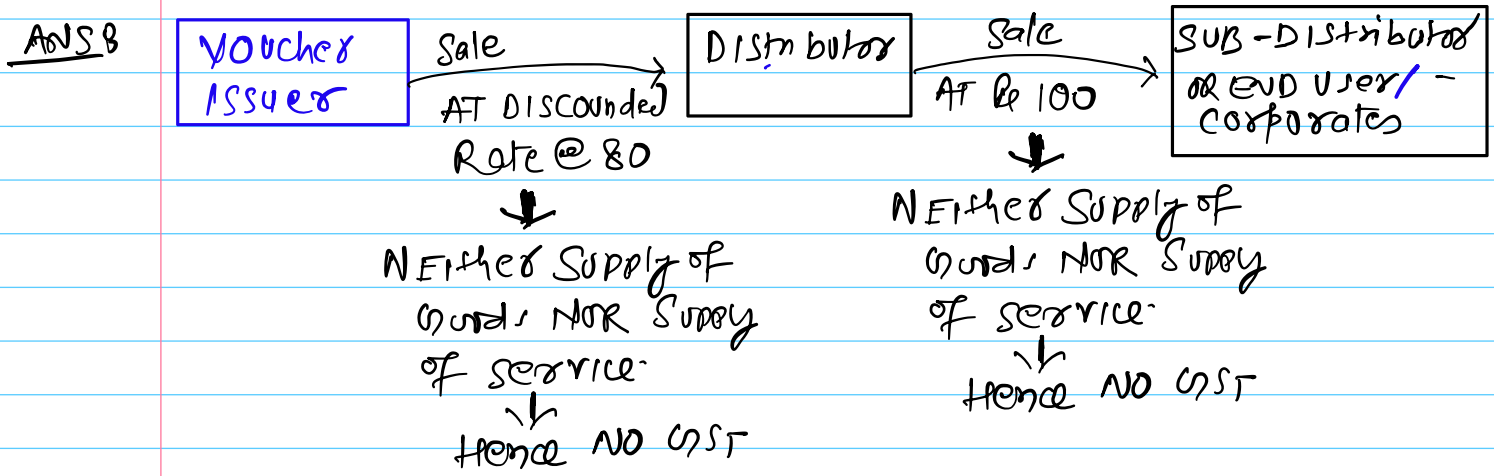 ANS B
Voucher
Issuer
Sale
AT DISCOUNDED
Rate @ 80
Distributor
Sale
AT Rs 100
SUB-DIStributor
OR END User/-
Corporates
NEither Supply of
Goods NOR Supply
of service.
Hence NO GST
NEither Supply of
Goods NOR Supply
of service.
Hence NO GST